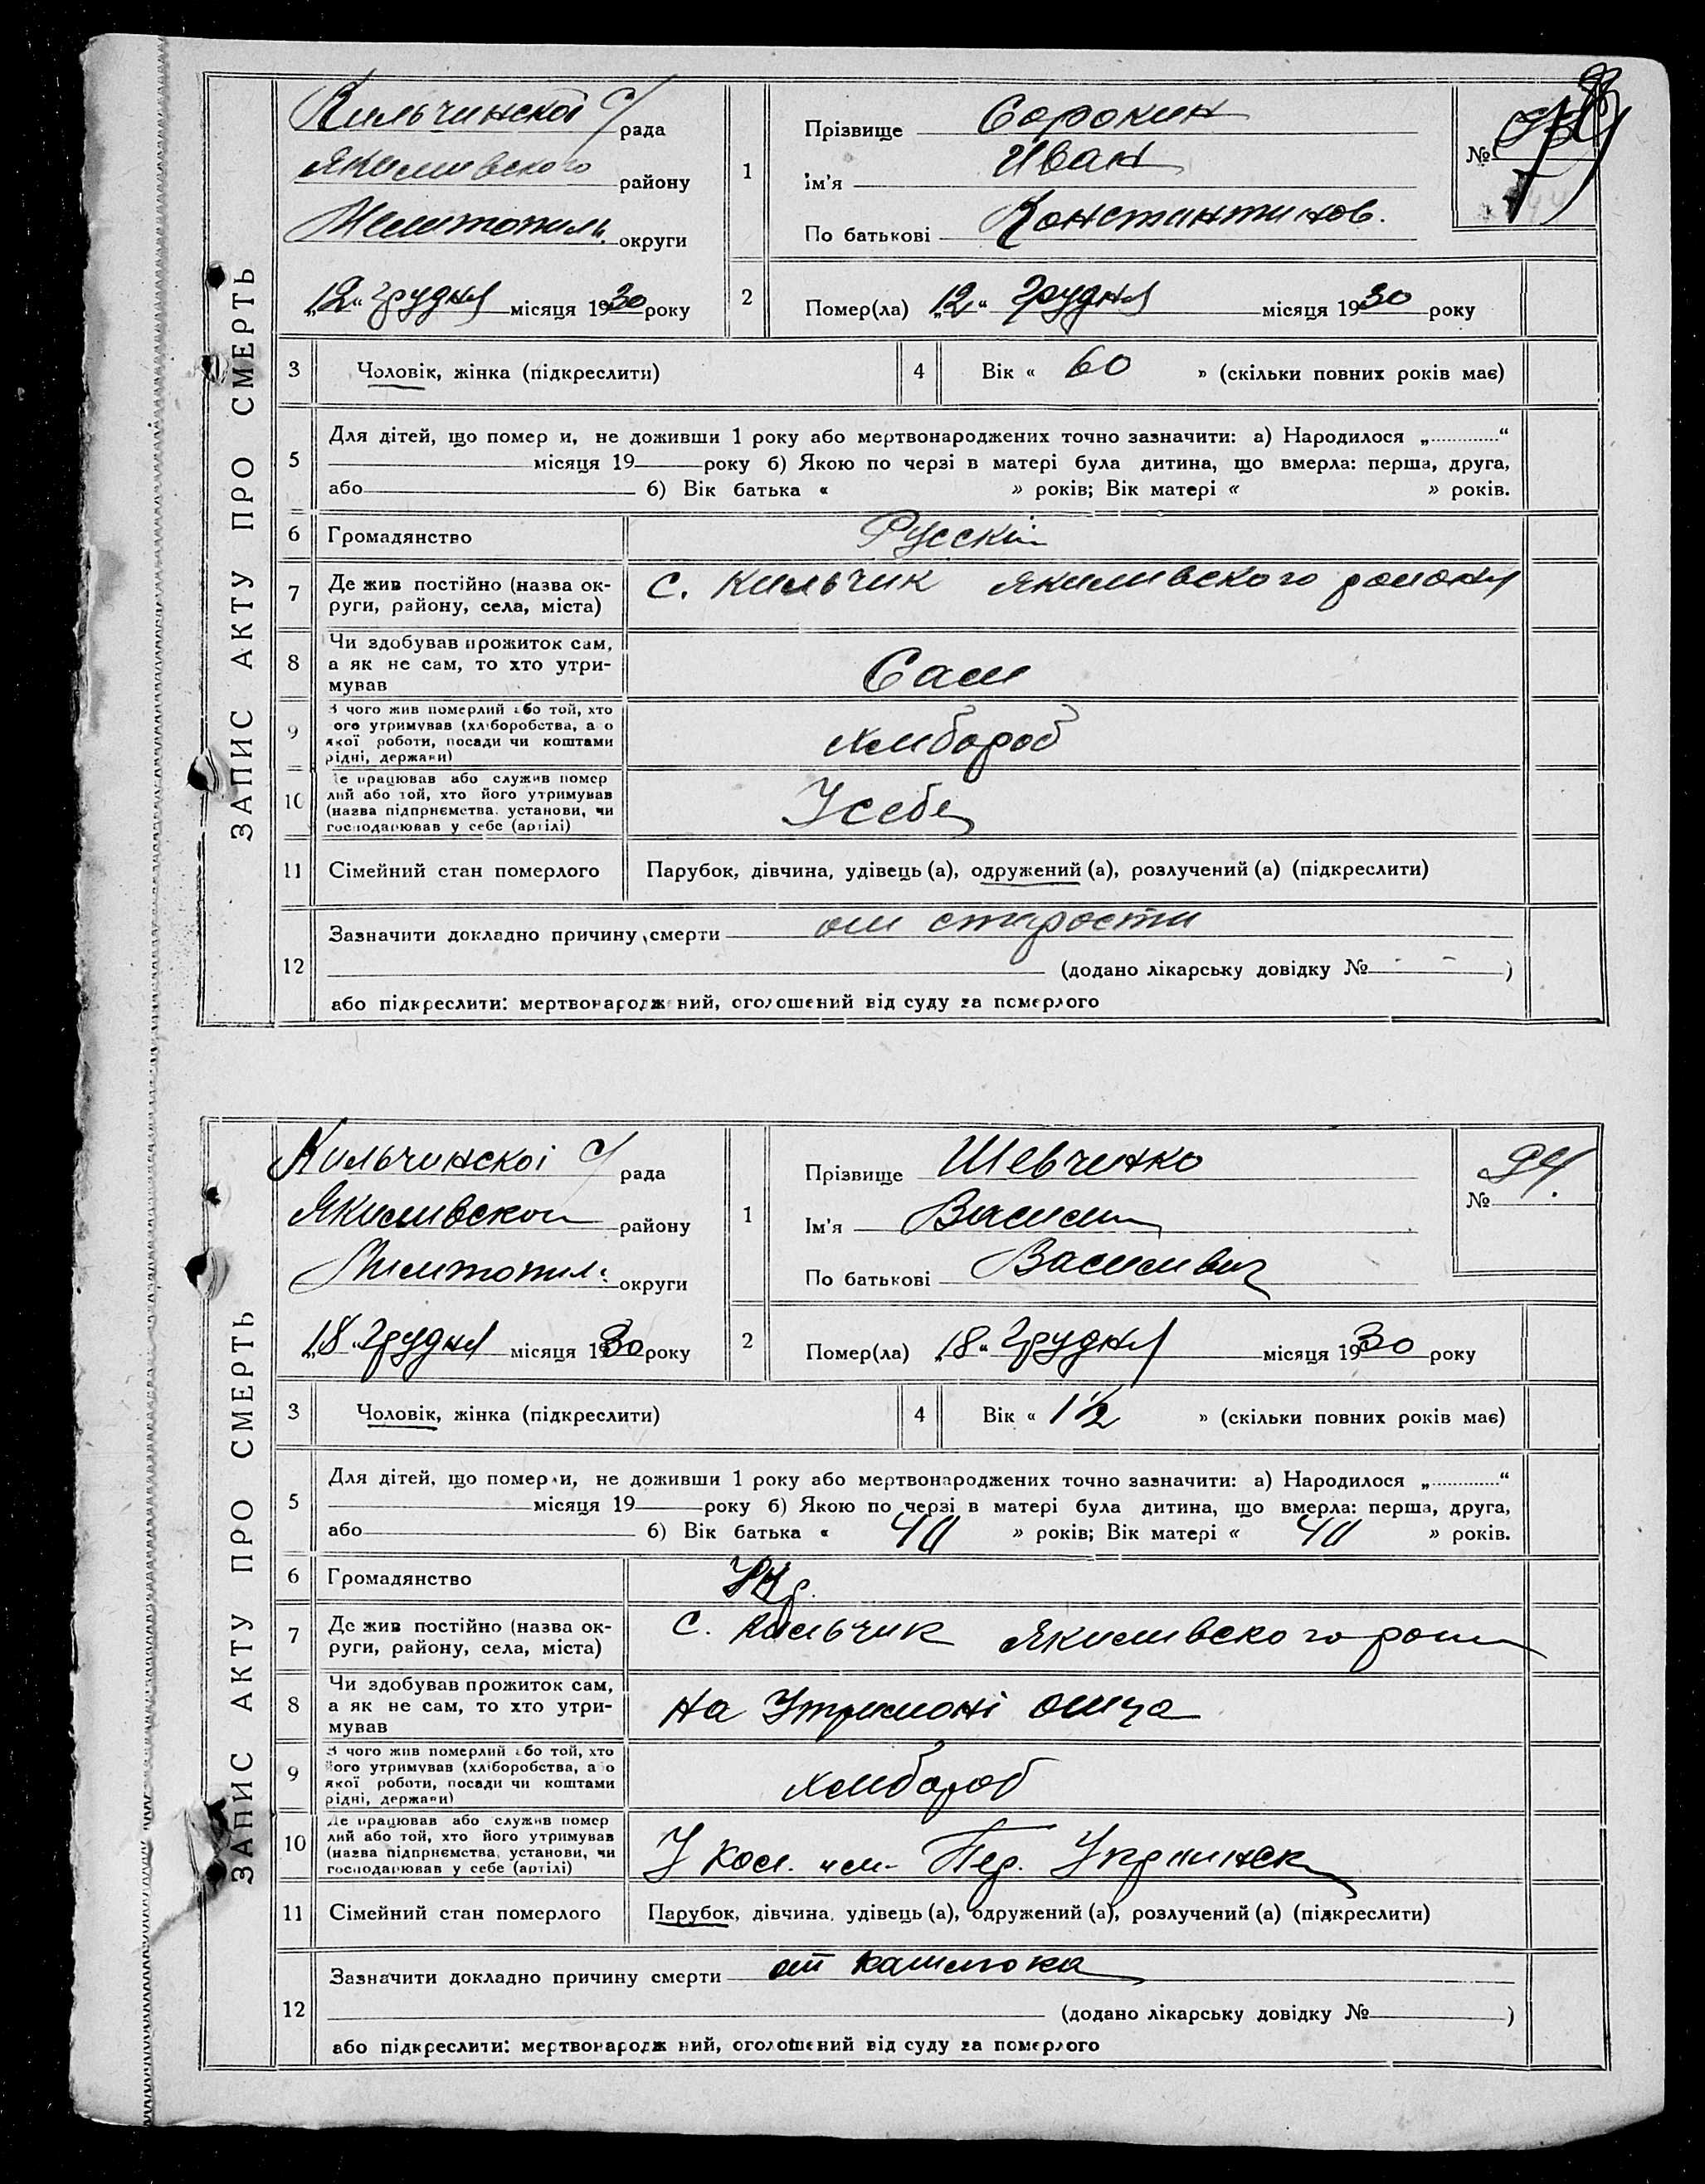 ЗАПИС АКТУ ПРО СМЕРТЬ
Кильчинскої С/рада
Якимивского району
Мелитопиль. округи
„12“ грудня місяця 1930 року
1 Прізвище Сорокин
Ім'я Иван
По батькові Константинов.
№
2 Помер(ла) „12“ грудня місяця 1930 року
3 Чоловік, жінка (підкреслити)
4 Вік « 60 » (скільки повних років має)
5 Для дітей, що помер и, не доживши 1 року або мертвонароджених точно зазначити: а) Народилося „ “
місяця 19 року б) Якою по черзі в матері була дитина, що вмерла: перша, друга,
або б) Вік батька « » років; Вік матері « » років.
6 Громадянство Русский
7 Де жив постійно (назва ок-
руги, району, села, міста) С. Кильчик Якимивского району
8 Чи здобував прожиток сам,
а як не сам, то хто утри-
мував Сам
9 З чого жив померлий або той, хто
ого утримував (хліборобства, а о
якої роботи, посади чи коштами
рідні, держави) хлибороб
10 Де працював або служив помер
лий або той, хто його утримував
(назва підприємства, установи, чи
господарював у себе (артілі) У себе
11 Сімейний стан померлого Парубок, дівчина, удівець (а), одружений (а), розлучений (а) (підкреслити)
12 Зазначити докладно причину смерти от старости
(додано лікарську довідку № - - )
або підкреслити: мертвонародж ний, оголошений від суду за померлого
ЗАПИС АКТУ ПРО СМЕРТЬ
Кильчинскоі С/рада
Якимивского району
Мелитопил. округи
„18“ грудня місяця 1930 року
1 Прізвище Шевченко
Ім'я Василий
По батькові Василивич
№ 94.
2 Помер(ла) „18“ грудня місяця 1930 року
3 Чоловік, жінка (підкреслити)
4 Вік « 1½ » (скільки повних років має)
5 Для дітей, що помер и, не доживши 1 року або мертвонароджених точно зазначити: а) Народилося „ “
місяця 19 року б) Якою по черзі в матері була дитина, що вмерла: перша, друга,
або б) Вік батька « 40 » років; Вік матері « 40 » років.
6 Громадянство
7 Де жив постійно (назва ок-
руги, району, села, міста) С. Кильчик Якимивского району
8 Чи здобував прожиток сам,
а як не сам, то хто утри-
мував на Утримоні отца
9 З чого жив померлий або той, хто
його утримував (хліборобства, а о
якої роботи, посади чи коштами
рідні, держави) хлибороб
10 Де працював або служив помер
лий або той, хто його утримував
(назва підприємства, установи, чи
господарював у себе (артілі) У Кол. им.
11 Сімейний стан померлого Парубок, дівчина, удівець (а), одружений (а), розлучений (а) (підкреслити)
12 Зазначити докладно причину смерти от кашлюка
(додано лікарську довідку № )
або підкреслити: мертвонародж ний, оголошений від суду за померлого